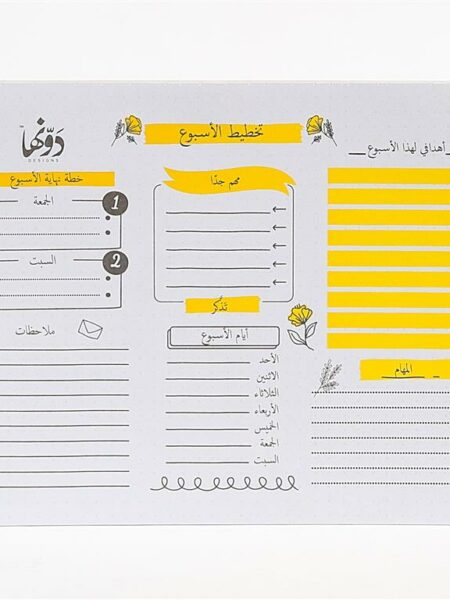 تخطيط الأسبوع
أهدافي لهذا الأسبوع
المهام
مهم جدًا
تذكّر
أيام الأسبوع
الأحد
الاثنين
الثلاثاء
الأربعاء
الخميس
الجمعة
السبت
دوّنها
DESIGNS
خطة نهاية الأسبوع
1
الجمعة
2
السبت
ملاحظات